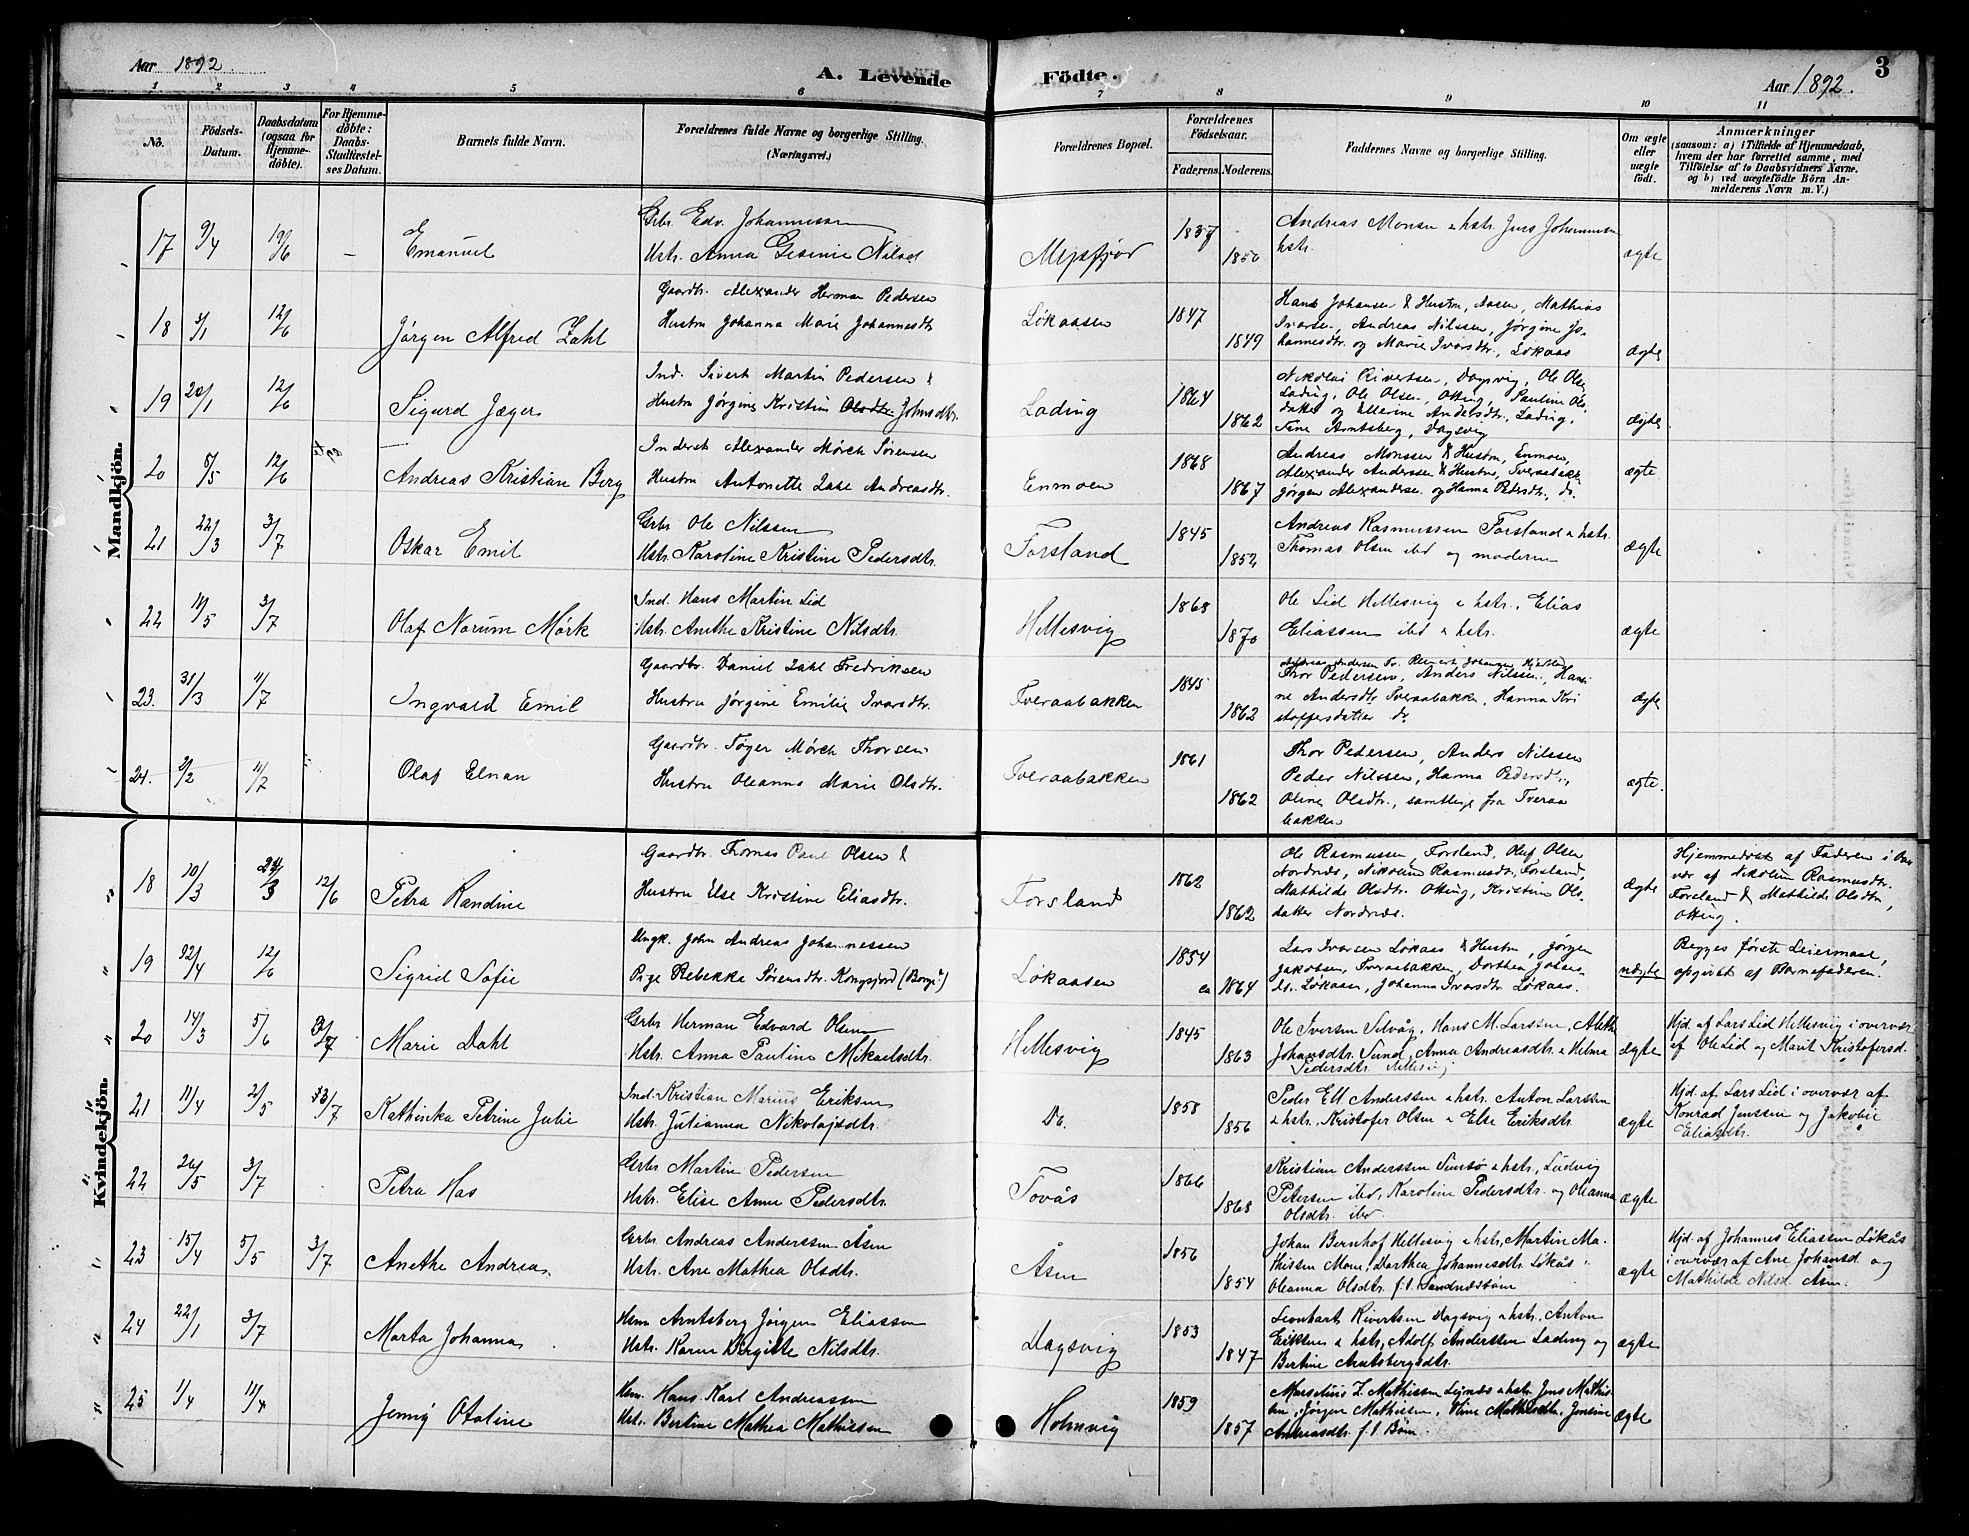 Aar 1892.
A. Levende Födte.
3
Aar 1892.
1 2 3 4 5 6 7 8 9 10 11
No.
Födsels-Datum.
Daabsdatum (ogsaa for Hjemme-döbte).
For Hjemme-döbte: Daabs-Stadfæstel-ses Datum.
Barnets fulde Navn.
Forældrenes fulde Navne og borgerlige Stilling. (Næringsvei.)
Forældrenes Bopæl.
Forældrenes Födselsaar.
Faderens. Moderens.
Faddernes Navne og borgerlige Stilling.
Om ægte eller uægte födt.
Anmærkninger
(saasom: a) i Tilfælde af Hjemmedaab,
hvem der har forrettet samme, med
Tilföielse af to Daabsvidners Navne.
og b) ved uægtefödte Börn An-
melderens Navn m. V.)
Mandkjön.
17 9/4 19/6 – Emanuel
Gbr. Edv. Johannessen
Hstr. Anna Gesine Nilsd
Mejsfjord 1837 1850
Andreas Monsen & hstr. Jens Johannesen
hstr.
ægte
18 3/1 12/6 Jørgen Alfred Zahl
Gaardbr. Alexander Herman Pedersen
Hustru Johanna Marie Johannesdtr
Løkaasen 1847 1849
Hans Johansen & Hustru, Aasen, Mathias
Ivarsen, Andreas Nilssen, Jørgine Jo-
hannesdtr. og Marie Ivarsdtr., Løkaas
ægte
19 20/1 12/6 Sigurd Jæger
Ind. Sivert Martin Pedersen &
Hustru Jørgine Kristine Olsdtr Johnsdtr.
Lading 1864 1862
Nikolai Sivertsen, Dagsvig, Ole Olsen
Lading, Ole Olsen, Otting, Pauline Ols-
datter og Ellerine Andersdtr., Lading,
Tine Arntsberg, Dagsvig
ægte
20 8/5 12/6 Andreas Kristian Berg
Inderst Alexander Mörch Sörensen
Hustru Antonette Zahl Andreasdtr.
Enmoen 1868 1867
Andreas Monssen & Hustru, Enmoen,
Alexander Anderssen & Hustru, Tveraabakk
Jörgen Alexandersen og Hanna Pedersdtr., do.
ægte
21 22/3 3/7 Oskar Emil
Grbr Ole Nilssen
Hstr. Karoline Kristine Pedersdtr.
Forsland 1845 1852
Andreas Rasmussen Forsland & hstr.
Thomas Olsen ibd og moderen
ægte
22 11/5 3/7 Olaf Norum Mørk
Ind. Hans Martin Lid
Hstr. Anethe Kristine Nilsdtr.
Hellesvig 1868 1870
Ole Lid Hellesvig & hstr., Elias
Eliassen ibd & hstr.
ægte
23. 31/3 11/7 Ingvald Emil
Gaardbr. Daniel Zahl Fredriksen
Hustru Jørgine Emilie Ivarsdtr.
Tveraabakken 1845 1862
Thor Pedersen, Anders Nilssen, Han-
ne Andersdtr Tveraabakken, Hanna Kri
stoffersdatter do
ægte
24. 2/2 11/7 Olaf Elnan
Gaardbr. Töger Mörch Thorsen
Hustru Oleanna Marie Olsdtr.
Tveraabakken 1861 1862
Thor Pedersen, Anders Nilssen
Peder Nilssen, Hanna Pedersdtr.,
Oline Olsdtr., samtlige fra Tveraa
bakken
ægte.
Kvindekjön.
18 10/3 24/3 12/6 Petra Randine
Gaardbr. Thomas Paul Olsen &
Hustru Else Kristine Eliasdtr.
Forsland 1862 1862
Ole Rasmussen, Forsland, Oluf Olsen
Nordnæs, Nikoline Rasmusdtr, Forsland,
Mathilde Olsdtr. Otting, Kristine Ols-
datter Nordnæs.
ægte
Hjemmedøbt af Faderen i Over
vær af Nikoline Rasmusdtr.
Forsland & Mathilde Olsdtr,
Otting.
19 12/6 Sigrid Sofie
Ungk. John Andreas Johannessen
Pige Rebekka Sørensdtr. Kongsfjord (Borge)
Løkaasen 1854 ca 1864
Lars Iversen Løkaas & Hustru, Jörgen
Jakobsen, Tveraabakken, Dorthea Johns-
dtr. Løkaasen, Johanna Ivarsdtr Løkaas.
uægte
Begges første Leiermaal,
opgivet af Barnefaderen.
20 14/3 5/6 3/7 Marie Dahl
Grbr Herman Edvard Olsen
Hstr. Anna Pauline Mikaelsdtr.
Hellesvig 1845 1863
Ole Iversen Selvåg, Hans M. Larssen, Aleth
Johansdtr. Sund, Anna Andreasdtr & Helma
Pedersdtr. Hellesvig
ægte
Hjd. af Lars Lid Hellesvig i overvær
af Ole Lid og Marit Kristofersd.
21 11/4 2/5 3/7 Kathinka Petrine Julie
Ind. Kristian Marius Eriksen
Hstr. Julianna Nikolajsdtr.
Do. 1858 1856
Peder Ell Anderssen & hstr. Anton Larssen
& hstr, Kristofer Olsen & Else Eriksdtr.
ægte
Hjd. af Lars Lid i overvær af
Konrad Jenssen og Jakobie
Eliasdtr.
22 26/5 3/7 Petra Has
Grbr Martin Pedersen
Hstr. Elise Anna Pedersdtr.
Tovås 1866 1868
Kristian Anderssen & hstr., Ludvig
Petersen ibd, Karoline Pedersdtr. og Oleanna
Olsdtr. ibd
ægte
23 15/4 5/5 3/7 Anethe Andrea
Grbr Andreas Anderssen Åsen
Hstr. Ane Mathea Olsdtr.
Åsen 1856 1854
Johan Bernhof Hellesvig & hstr, Martin Ma-
thissen Moen, Dorthea Johannesdtr. Løkås
Oleanna Olsdtr. f.t. Sandnæsbøen
ægte
Hjd. af Johannes Eliassen Løkås
i overvær af Ane Johansd og
Mathilde Nilsd. Åsen.
24 22/1 3/7 Marta Johanna
Hsm Arntsberg Jörgen Eliassen
Hstr. Karen Birgitte Nilsdtr.
Dagsvig 1853 1847
Leonhart Sivertsen Dagsvig & hstr, Anton
Eriksen & hstr, Adolf Anderssen Lading og
Bertine Arntsbergsdtr.
ægte
25 1/4 17/4 Jenny Otaline
Hsm. Hans Karl Andreassen
Hstr. Bertine Mathea Mathissen
Holmvig 1859 1857
Marselius Z. Mathissen & hstr Jens Mathis-
sen, Jörgen Mathissen, Jensine
Andreasdtr. f.t. Böen.
ægte